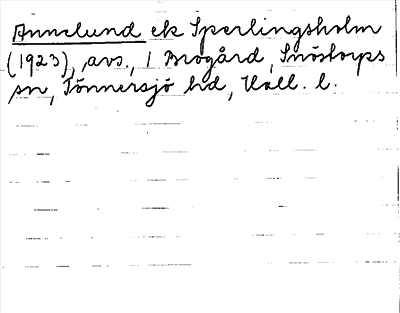 Annelund ek Sperlingsholm
(1923), avs., 1 Brogård, Snöstorps
sn, Tönnersjö hd, Hall. l.